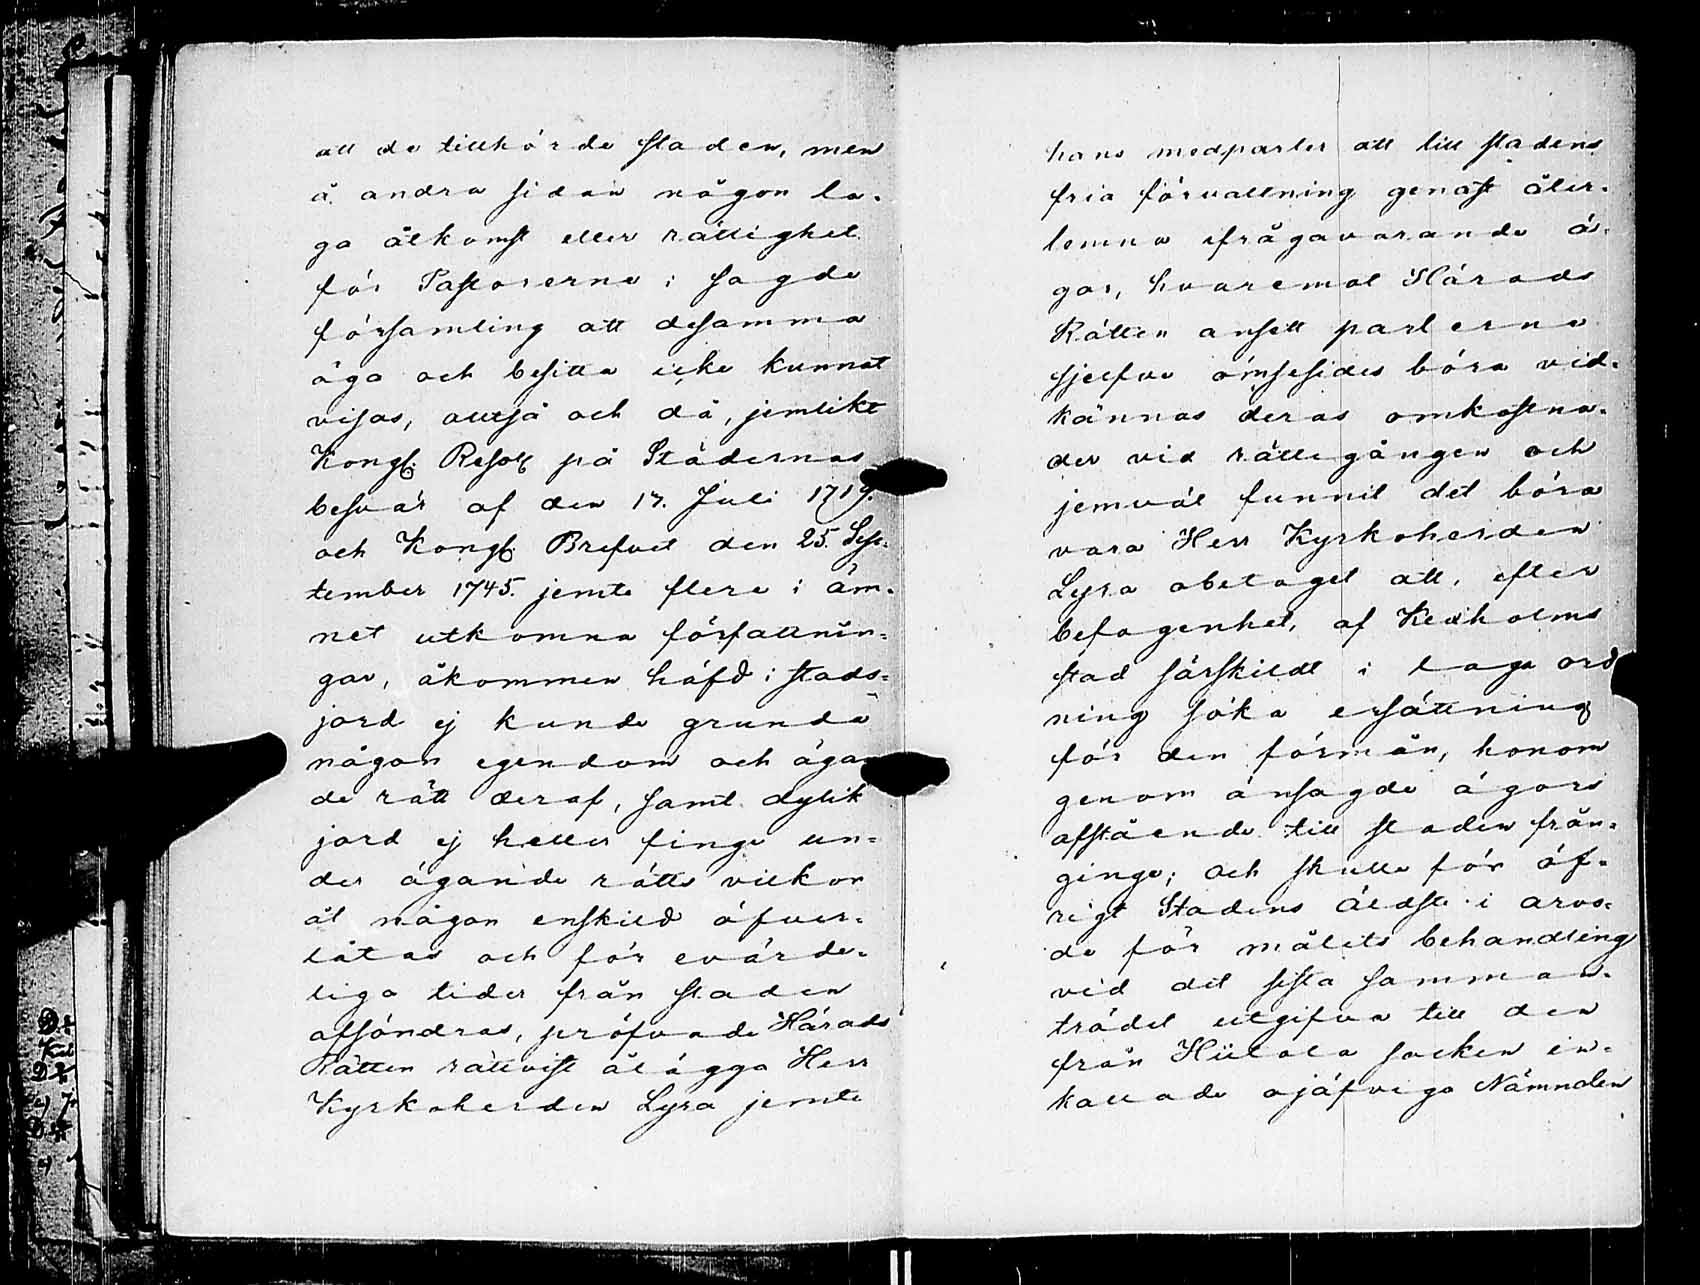 att de tillhörde staden, men
å andra sidan någon la-
ga åtkomst eller rättighet
för Pastorerne i sagde
församling att desamma
äga och besitta icke kunnat
visas, alltså och då, jemlikt
Kongl. Resol på Städernas
besvär af den 17. Juli 1719.
och Kongl. Brefvet den 25. Sep-
tember 1745. jemte flere i äm-
net utkomna författnin-
gar, åkommen häfd i stads-
jord ej kunde grunda
någon egendom och ägan
de rätt deraf, samt dylik
jord ej heller finge un-
der ägande rätts vilkor
åt någon enskild öfver-
låtas och för evärde-
liga tider från staden
afsöndras, pröfvade Härads
Rätten rättvist ålägga Herr
Kyrkoherden Lyra jemte
hans medparter att till stadens
fria förvaltning genast åter-
lemna ifrågavarande ä-
gor, hvaremot Härads
Rätten ansett parterne
sjelfve ömsesides böra vid-
kännas deras omkostna-
der vid rättegången och
jemväl funnit det böra
vara Herr Kyrkoherden
Lyra obetaget att, efter
befogenhet, af Kexholms
stad särskildt i laga ord
ning söka ersättning
för den förmån, honom
genom ansagde ägors
afstående till staden från-
ginge; och skulle för öf-
rigt Stadens Äldste i arvo-
de för målets behandling
vid det sista samman-
trädet utgifva till den
från Hiitola socken in-
kallade ojäfviga Nämnden